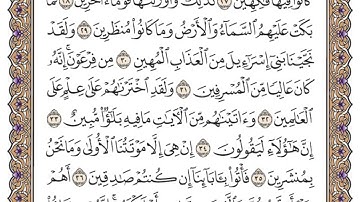 كَانُوا۟ فِيهَا فَٰكِهِينَ ٢٧ كَذَٰلِكَ وَأَوْرَثْنَٰهَا قَوْمًا ءَاخَرِينَ ٢٨ فَمَا
بَكَتْ عَلَيْهِمُ ٱلسَّمَآءُ وَٱلْأَرْضُ وَمَا كَانُوا۟ مُنظَرِينَ ٢٩ وَلَقَدْ
نَجَّيْنَا بَنِىٓ إِسْرَٰٓءِيلَ مِنَ ٱلْعَذَابِ ٱلْمُهِينِ ٣٠ مِن فِرْعَوْنَ ۚ إِنَّهُۥ
كَانَ عَالِيًا مِّنَ ٱلْمُسْرِفِينَ ٣١ وَلَقَدِ ٱخْتَرْنَٰهُمْ عَلَىٰ عِلْمٍ عَلَى
ٱلْعَٰلَمِينَ ٣٢ وَءَاتَيْنَٰهُم مِّنَ ٱلْءَايَٰتِ مَا فِيهِ بَلَٰٓؤٌا۟ مُّبِينٌ ٣٣
إِنَّ هَٰٓؤُلَآءِ لَيَقُولُونَ ٣٤ إِنْ هِىَ إِلَّا مَوْتَتُنَا ٱلْأُولَىٰ وَمَا نَحْنُ
بِمُنشَرِينَ ٣٥ فَأْتُوا۟ بِـَٔابَآئِنَآ إِن كُنتُمْ صَٰدِقِينَ ٣٦ أَهُمْ